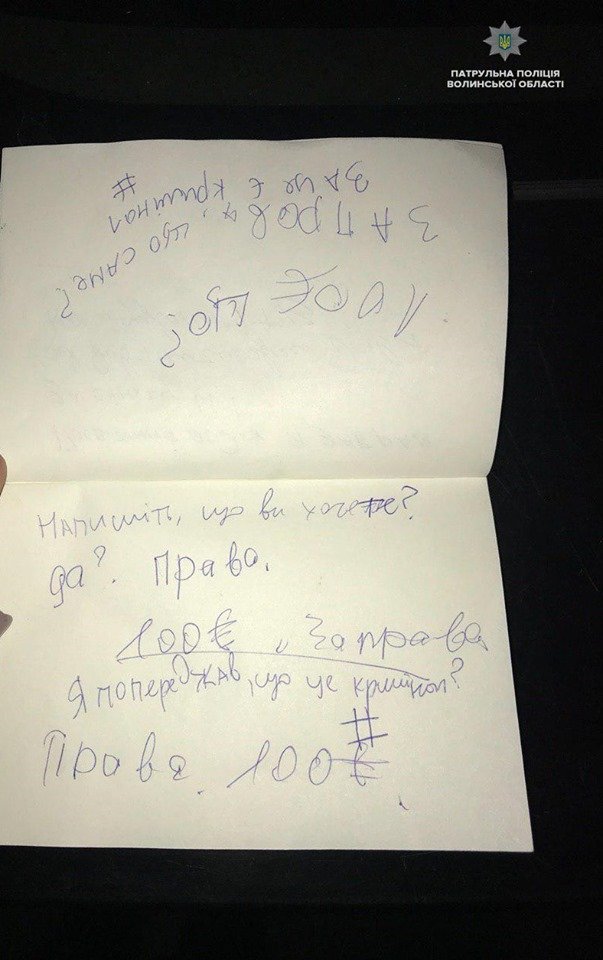 ПАТРУЛЬНА ПОЛІЦІЯ
ВОЛИНСЬКОЇ ОБЛАСТІ
100€ що?
ЗА ПРАВА, що саме?
За це є кримінал
#
Напишіть, що ви хочете?
да?. Права.
100€ За права
Я попереджав, що це кримінал?
#
Права. 100€.